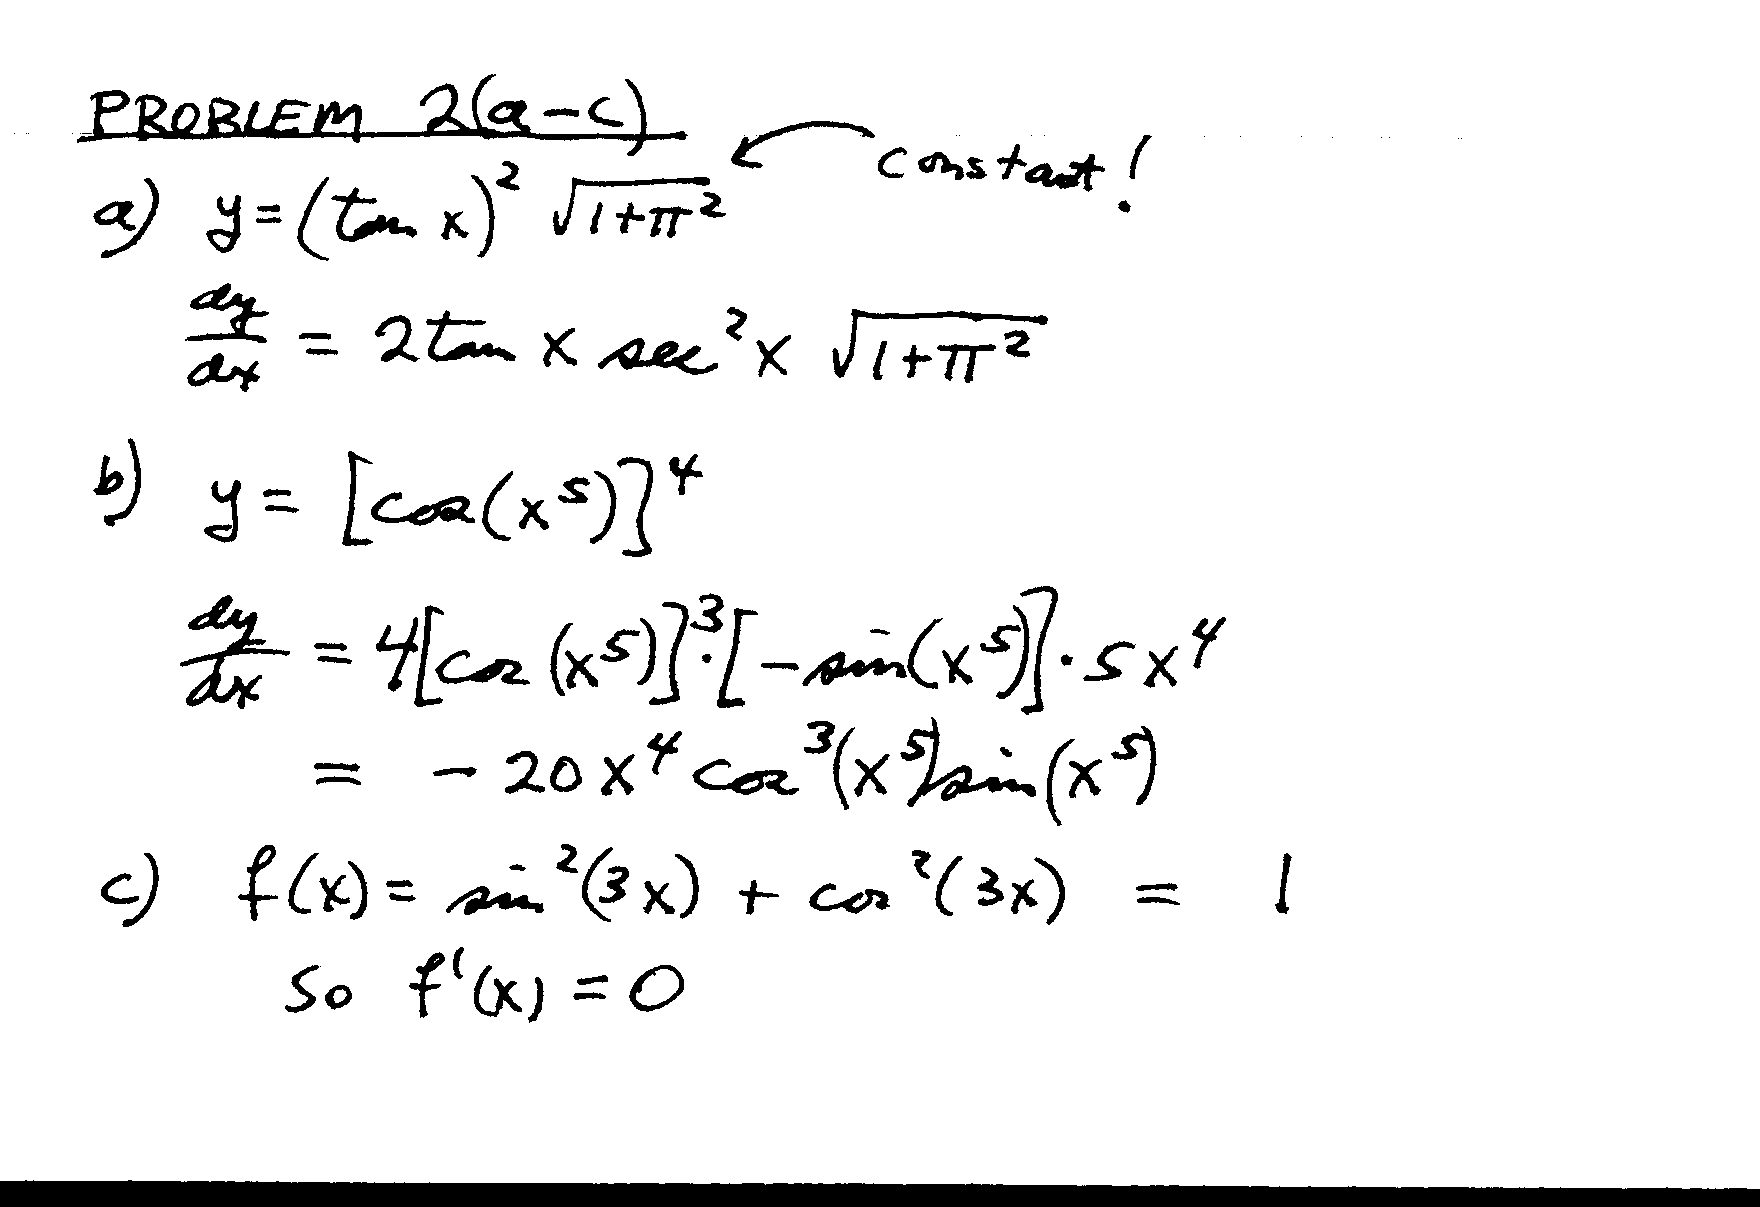 PROBLEM 2(a-c)
constant!
a) y = (tan x)² √(1+π²)
dy/dx = 2 tan x sec² x √(1+π²)
b) y = [cos(x⁵)]⁴
dy/dx = 4[cos(x⁵)]³·[-sin(x⁵)]·5x⁴
= -20x⁴ cos³(x⁵) sin(x⁵)
c) f(x) = sin²(3x) + cos²(3x) = 1
So f'(x) = 0